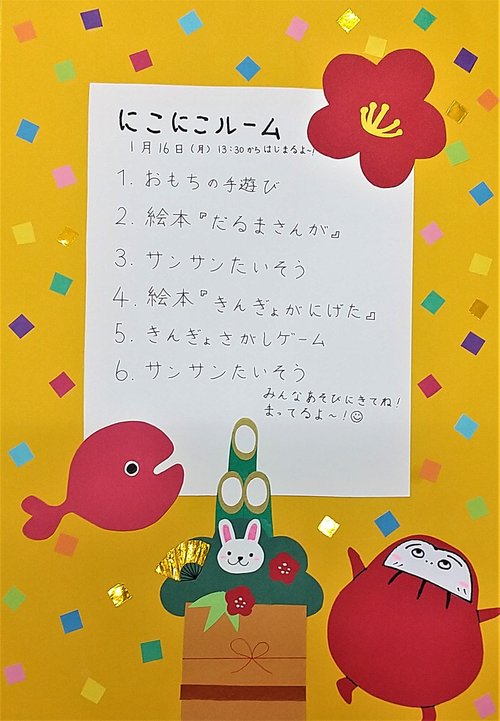 にこにこルーム
1月16日(月) 13:30からはじまるよ~!
1. おもちの手遊び
2. 絵本『だるまさんが』
3. サンサンたいそう
4. 絵本『きんぎょがにげた』
5. きんぎょさがしゲーム
6. サンサンたいそう
みんなあそびにきてね!
まってるよ~!☺